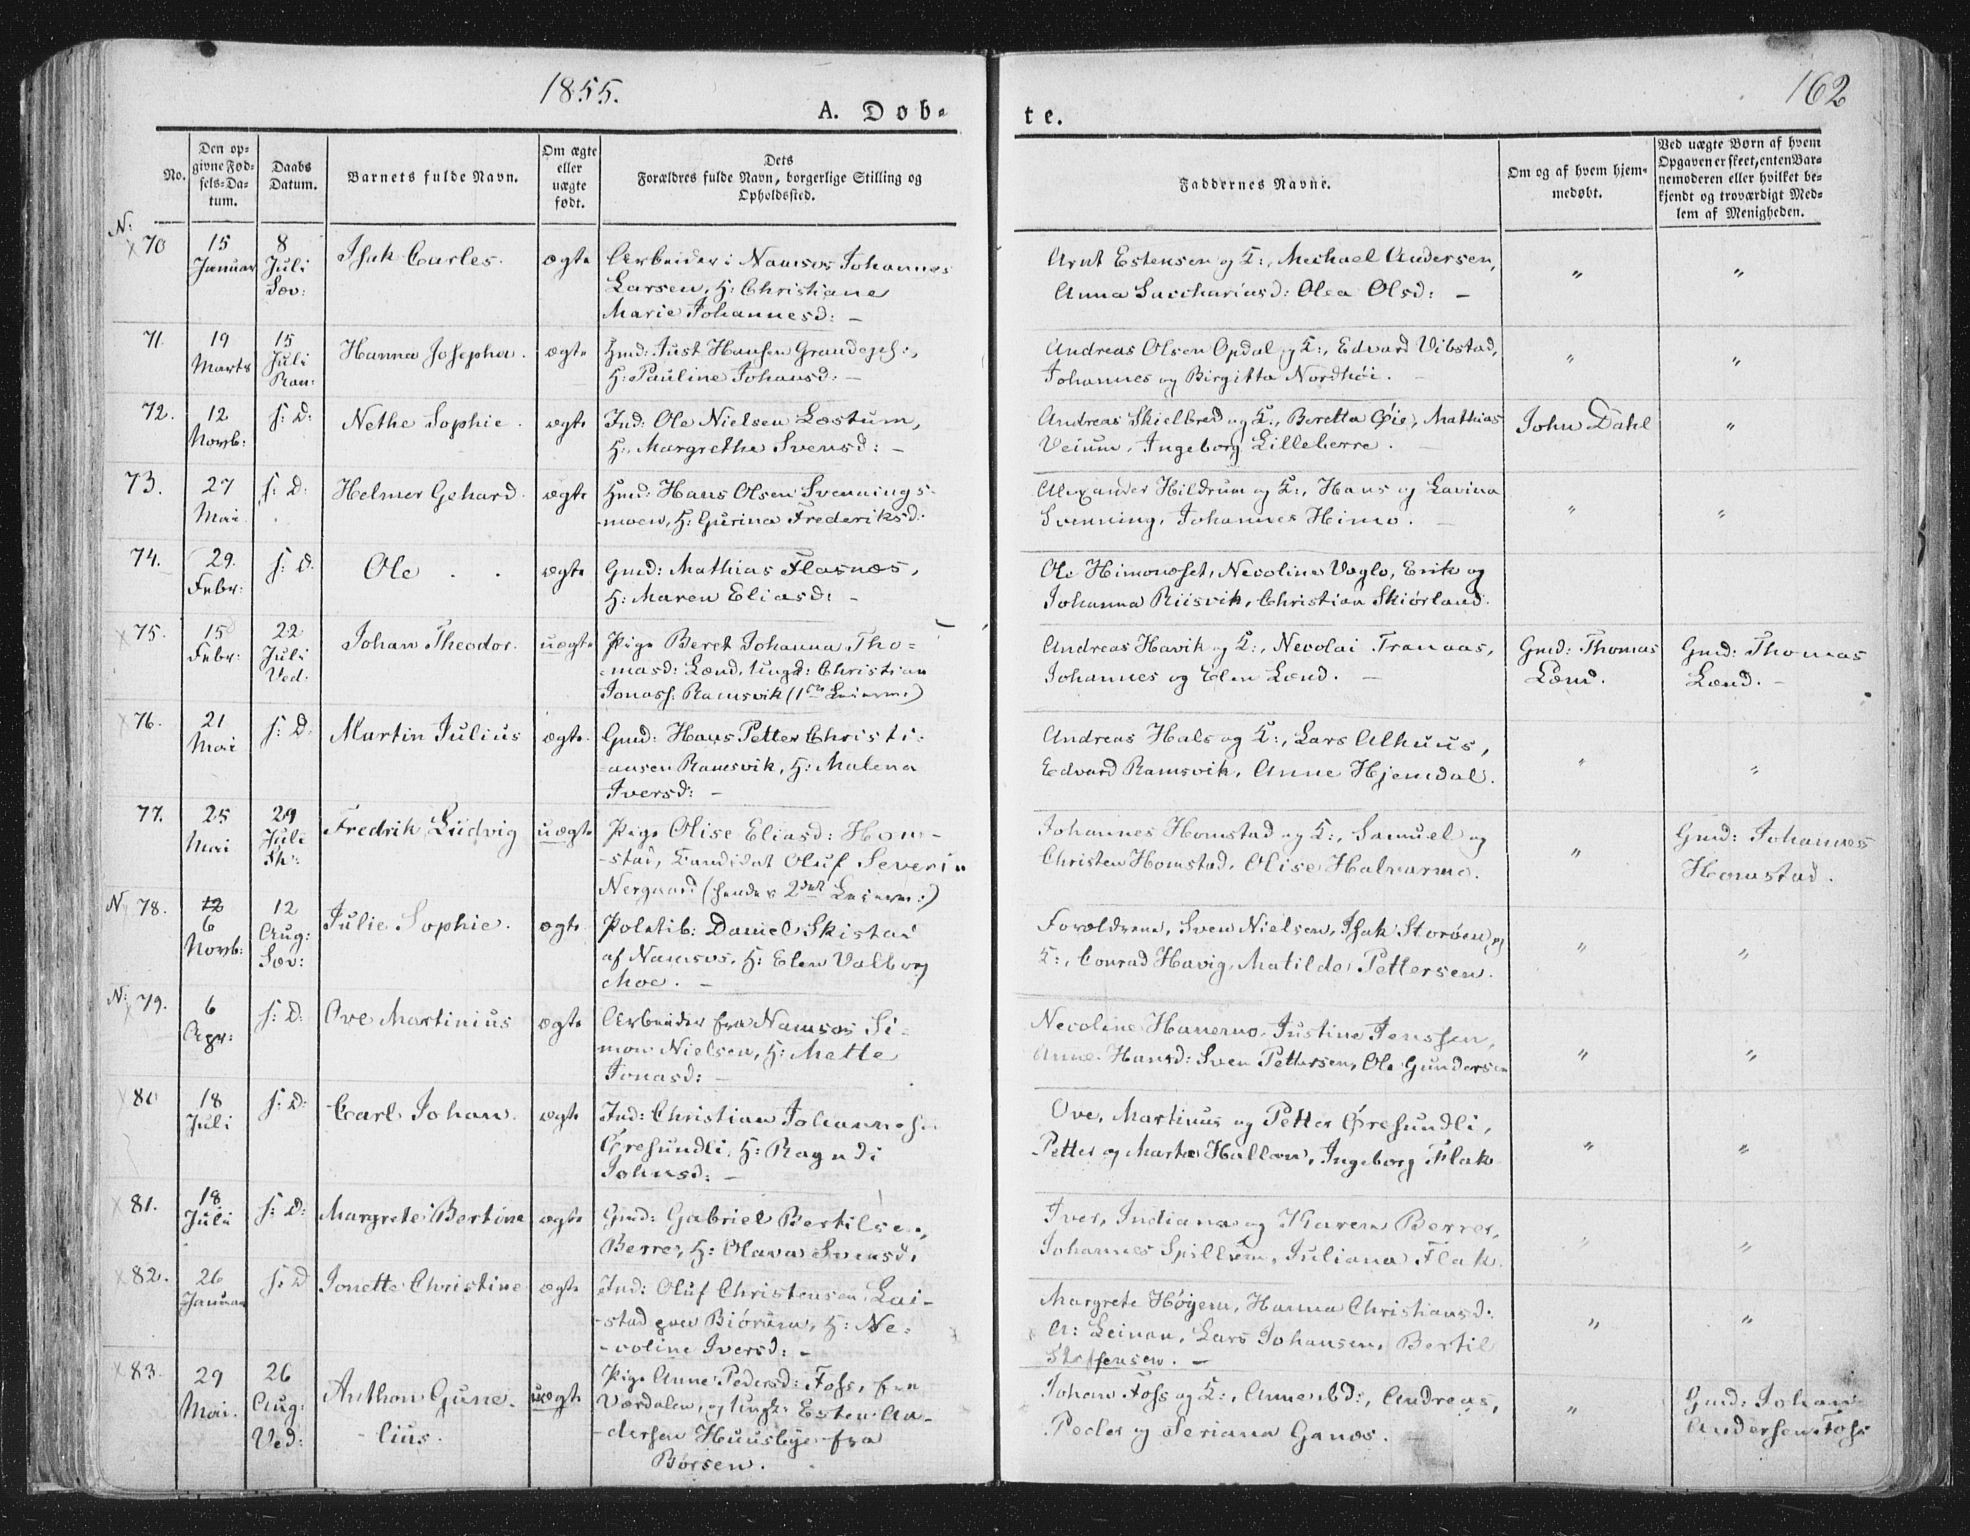 1855.
162
A. Døb-
te.
No.
Den op-
givne Fød-
sels-Da-
tum.
Daabs
Datum.
Barnets fulde Navn.
Om ægte
eller
uægte
født.
Dets
Forældres fulde Navn, borgerlige Stilling og
Opholdssted.
Faddernes Navne.
Om og af hvem hjem-
medøbt.
Ved uægte Børn af hvem
Opgaven er skeet, enten Bar-
nemoderen eller hvilket be-
kjendt og troværdigt Med-
lem af Menigheden.
N:
70 15 Januar 8 Juli Søv: Isak Carles. ægte
Arbeider i Namsos Johannes
Larsen, H: Christiane
Marie Johannesd: -
Arnt Estensen og K:, Michael Andersen,
Anna Sacchariasd: Olea Olsd: - " "
71. 19 Marts 15 Juli Ran: Hanna Josepha. ægte
Hmd: Just Hansen
H: Pauline Johansd: -
Andreas Olsen Opdal og K:, Edvard Vibstad,
Johannes og Birgitta Nordhøi. - " "
72. 12 Novb: s: D: Nethe Sophie. ægte
Ind: Ole Nielsen Læstum,
H: Margrethe Svensd: -
Andreas Skielbred og K:, Beretta Øie, Mathias
Veium, Ingeborg Lilleberre. John Dahl "
73. 27 Mai s: D: Helmer Gehard ægte
Hmd: Hans Olsen Svennings-
-moen, H: Gurina Frederiksd:
Alexander Hildrum og K:, Hans og Lavina
Svenning, Johannes Himo. - " "
74. 29. Febr: s: D: Ole . . ægte
Gmd: Mathias Flasnæs,
H: Maren Eliasd: -
Ole Himovalset, Nicoline Vagle, Erik og
Johanna Riisvik, Christian Skiørland.
75. 15 Febr: 22 Juli Ved: Johan Theodor. uægte
Pige Beret Johanna Tho=
-masd: Lænd, Ungk: Christian
Jonass: Ramsvik (1ste Leierm:)
Andreas Havik og K:, Nicolai Tranaas,
Johannes og Elen Lænd. -
Gmd: Thomas
Lænd.
Gmd: Thomas
Lænd. -
76. 21 Mai s: D: Martin Julius ægte.
Gmd: Hans Petter Christi-
-ansen Ramsvik, H: Malena
Iversd: -
Andreas Hals og K:, Lars Alhuus,
Edvard Ramsvik, Anne Hjemdal. " "
77. 25 Mai 29 Juli Sk: Fredrik Ludvig uægte
Pige Olise Eliasd: Hom-
-stad, Candidat Oluf Severin
Nergaard (hendes 2det Leierm:)
Johannes Homstad og K:, Samuel og
Christen Homstad, Olise Halvarmo. "
Gmd: Johannes
Homstad.
N: 78. 12 6 Novb: 12 Aug: Søv: Julie Sophie. ægte
Politib: Daniel Skistad
af Namsos, H: Elen Valborg
Moe. -
Forældrene, Sven Nielsen, Isak Storøen og
K:, Conrad Havig, Matilde Pettersen. " "
N: 79. 6 Apr: s: D: Ove Martinius ægte
Arbeider fra Namsos Si-
mon Nielsen, H: Mette
Jonasd: -
Nicoline Hanemo, Justine Jenssen,
Anne Hansd: Sven Pettersen, Ole Gundersen " "
80 18 Juli s: D: Carl Johan. ægte
Ind: Christian Johanness:
Øresundli, H: Ragndi
Johnsd: -
Ove, Martinus og Petter Øresundli,
Petter og Marta Hallan, Ingeborg Flak " "
81. 18 Juli s: D: Margrete Bertine ægte
Gmd: Gabriel Bertilsen,
Berre, H: Olava Svensd:
Iver, Indiana og Karen Berrer,
Johannes Spillum, Juliana Flak. " "
82. 26 Januar s: D Jonette Christine ægte
Ind: Oluf Christensen Lai-
-stad paa Biørum, H: Ne-
-coline Iversd: -
Margrete Høyem, Hanna Christiansd:
A: Leinan, Lars Johansen, Bertil
Steffensen. - " "
83. 29 Mai. 26 Aug: Ved: Anthon Gune-
-lius. uægte
Pige Anne Pedersd: Foss, fra
Værdalen, og Ungk: Esten An-
-dersen Huusbye fra
Børsen.
Johan Foss og K:, Anne dd:, Andreas,
Peder og Seriana Ganæs. "
Gmd: Johan
Andersen Foss